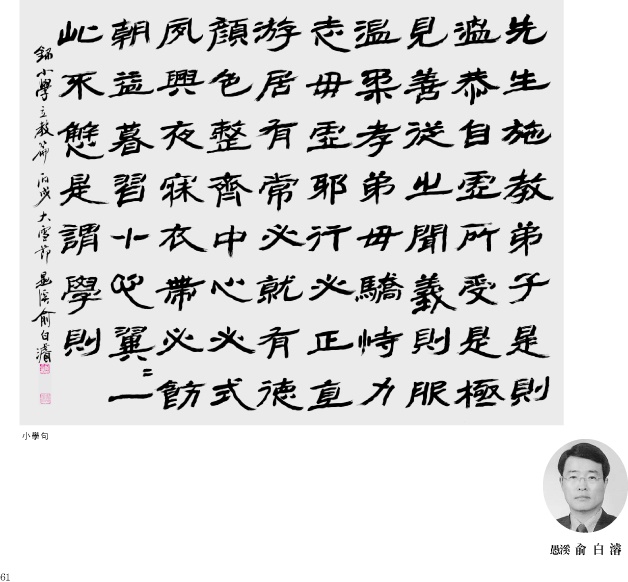 先生施教弟子是則
溫恭自虛所受是極
見善從之聞義則服
溫柔孝弟毋驕恃力
志毋虛耶行必正直
游居有常必就有德
顏色整齊中心必式
夙興夜寐衣帶必飭
朝益暮習小心翼〻一
此不懈是謂學則
錄小學立教篇 丙戌大雪節 愚溪 俞白濬
小學句
愚溪 俞白濬
61